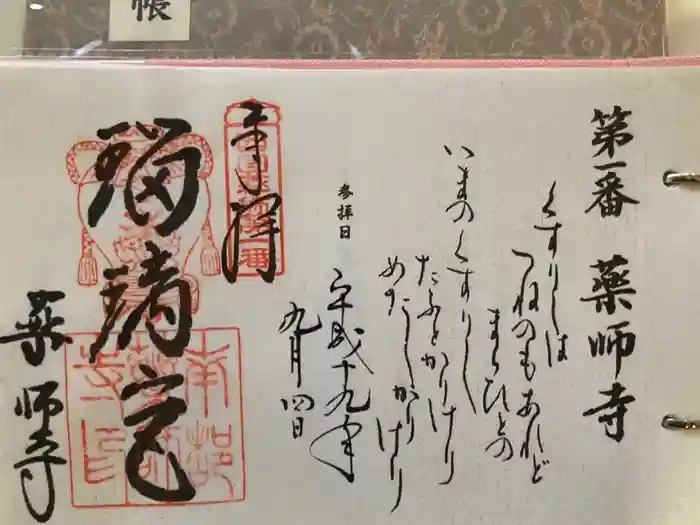 帳
第一番 薬師寺
くすりしは
つねのもあれど
まらひとの
いまのくすりし
たふとかりけり
めだしかりけり
参拝日 平成十九年
九月四日
奉拝
瑠璃宮
薬師寺